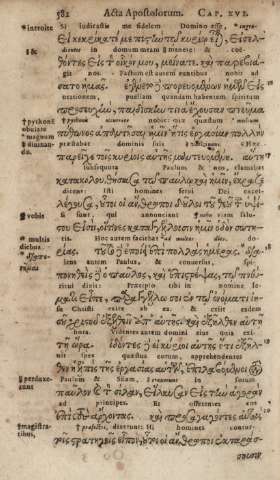 582 Acta Apostolorum. CAP. XVI.
Si iudicastis me fidelem Domino esse,
Εἰ κεκρίκατέ με πιστὴν τῷ κυρίῳ εἶναι, εἰσελ-
in domum meam & manete: & coë-
θόντες εἰς τὸν οἶκόν μου, μείνατε. καὶ παρεβιά-
git nos. Factum est autem euntibus nobis ad
σατο ἡμᾶς. ἐγένετο πορευομένων ἡμῶν εἰς
orationem, puellam quandam habentem spiritum
προσευχὴν, παιδίσκην τινὰ ἔχουσαν πνεῦμα
obuiare nobis: quæ quæstum magnum
πύθωνος ἀπαντῆσαι ἡμῖν, ἥτις ἐργασίαν πολλὴν
præstabat dominis suis
παρεῖχε τοῖς κυρίοις αὐτῆς μαντευομένη. αὕτη
subsequuta Paulum & nos, clamabat
κατακολουθήσασα τῷ παύλῳ καὶ ἡμῖν, ἔκραζε
dicens: Isti homines serui Dei excel-
λέγουσα, οὗτοι οἱ ἄνθρωποι δοῦλοι τοῦ θεοῦ τοῦ ὑψί-
si sunt, qui annunciant viam salu-
στου εἰσὶν, οἵτινες καταγγέλλουσιν ἡμῖν ὁδὸν σωτη-
tis. Hoc autem faciebat multis dies.
ρίας. τοῦτο δὲ ἐποίει ἐπὶ πολλὰς ἡμέρας.
lens autem Paulus, & conuersus, spi-
ὁ παῦλος, καὶ ἐπιστρέψας, τῷ πνεύ-
ritui dixit: Præcipio tibi in nomine Ie-
ματι εἶπε, παραγγέλλω σοι ἐν τῷ ὀνόματι ἰη-
su Christi exire ab ea. & exiit eadem
σοῦ χριστοῦ ἐξελθεῖν ἀπ' αὐτῆς. καὶ ἐξῆλθεν αὐτῇ
hora. Videntes autem domini eius quia exi-
τῇ ὥρᾳ. ἰδόντες δὲ οἱ κύριοι αὐτῆς ὅτι ἐξῆλ-
uit spes quæstus eorum, apprehendentes
θεν ἡ ἐλπὶς τῆς ἐργασίας αὐτῶν, ἐπιλαβόμενοι τὸν
Paulum & Silam, in forum
παῦλον καὶ τὸν σίλαν, εἵλκυσαν εἰς τὴν ἀγορὰν
ad principes. Et offerentes eos
ἐπὶ τοὺς ἄρχοντας. καὶ προσαγαγόντες αὐτοὺς
dixerunt: Hi homines contur-
τοῖς στρατηγοῖς εἶπον, οὗτοι οἱ ἄνθρωποι ἐκταράσ-
σουσιν
introite
&
pythonē
obuiare
magnum
diuinan-
do.
vobis
multis
diebus.
perduxe-
runt
magistra-
tibus,